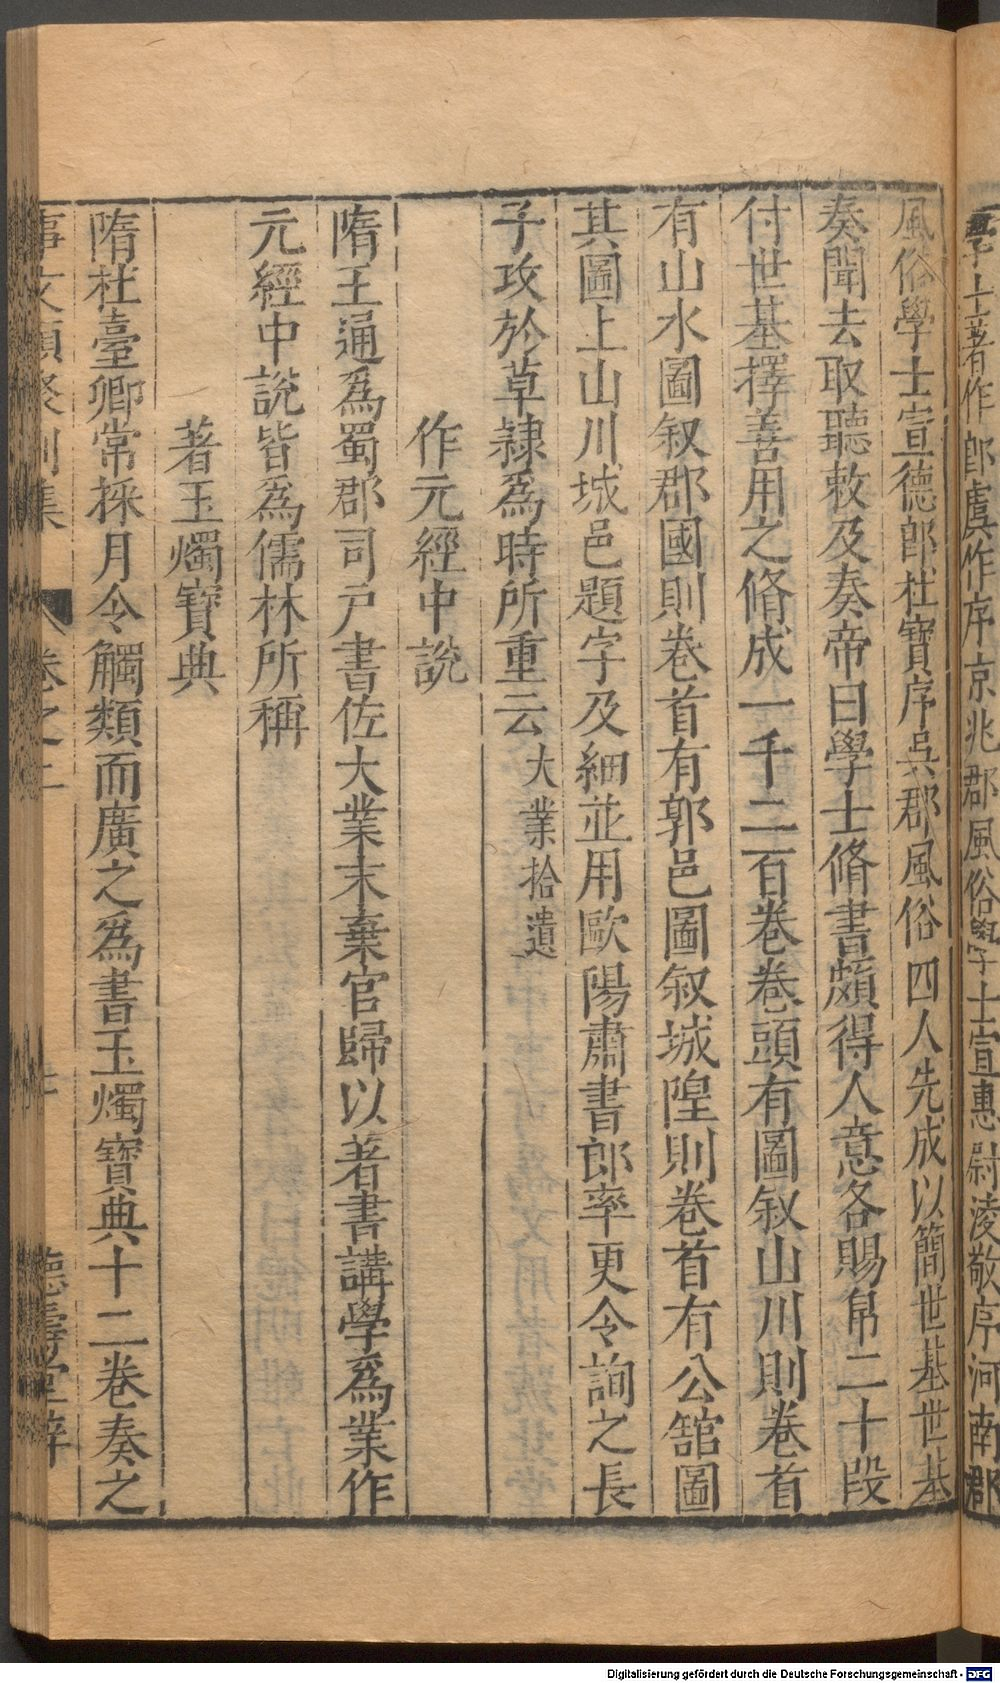 學士著作郎虞作序京兆郡風俗學士宣惠尉淩敬序河南郡
風俗學士宣德郎杜寶序吳郡風俗四人先成以簡世基世基
奏聞去取聽敕及奏帝曰學士脩書頗得人意各賜帛二十段
付世基擇善用之脩成一千二百卷卷頭有圖叙山川則卷首
有山水圖叙郡國則卷首有郭邑圖叙城隍則卷首有公舘圖
其圖上山川城邑題字及細並用歐陽肅書郎率更令詢之長
子攻於草隷爲時所重云 大業拾遺
作元經中說
隋王通爲蜀郡司戸書佐大業末棄官歸以著書講學爲業作
元經中說皆爲儒林所稱
著玉燭寶典
隋杜臺卿常採月令觸類而廣之爲書玉燭寶典十二卷奏之
事文類聚別集 卷之二 七 德壽堂梓
Digitalisierung gefördert durch die Deutsche Forschungsgemeinschaft - DFG